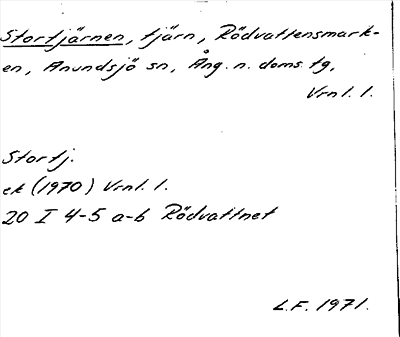 Stortjärnen, tjärn, Rödvattensmark-
en, Anundsjö sn, Ång. n. doms. tg,
Vrnl. l.
Stortj.
ek (1970) Vrnl. l.
20 I 4-5 a-b Rödvattnet
L.F. 1971.